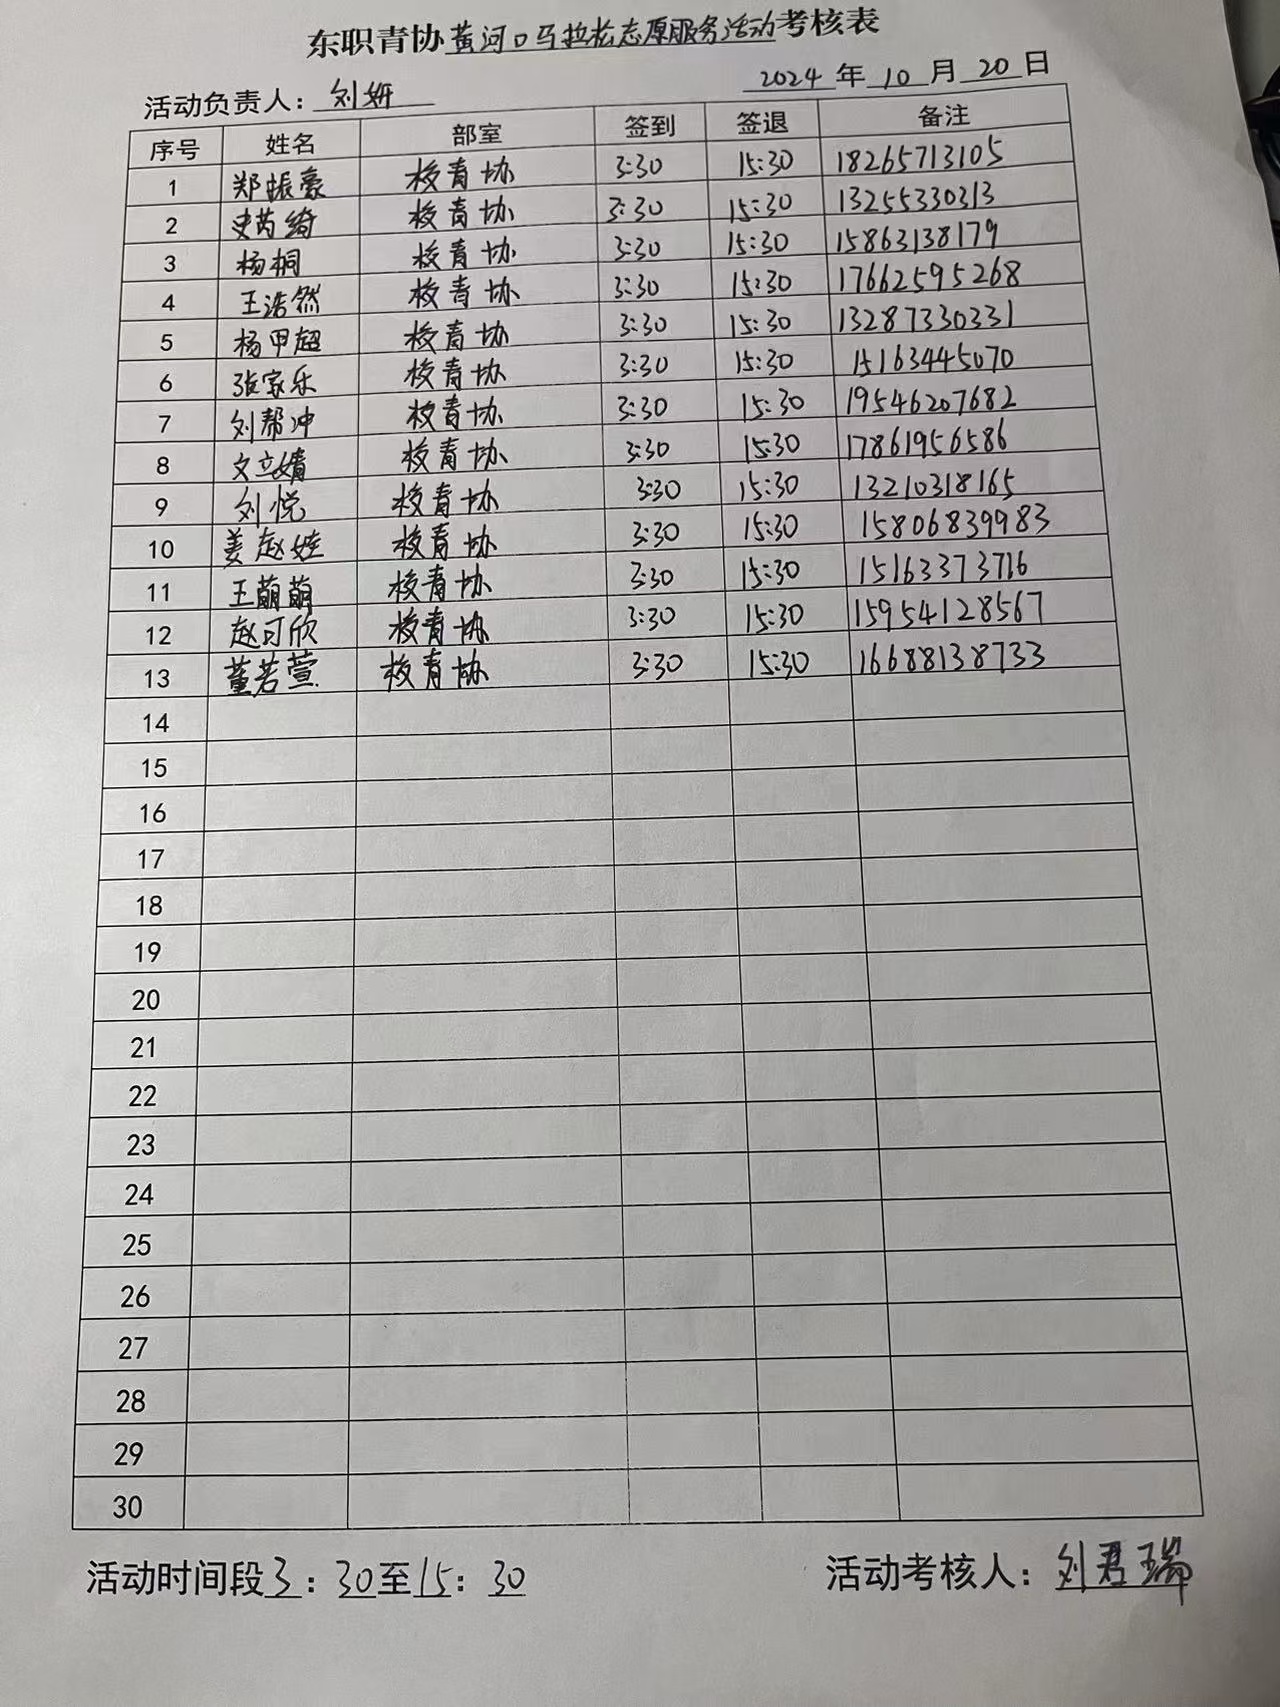 东职青协黄河口马拉松志愿服务活动考核表
活动负责人：刘妍 2024年10月20日
序号 姓名 部室 签到 签退 备注
1 郑振豪 校青协 3:30 15:30 18265713105
2 史芮绮 校青协 3:30 15:30 13255330313
3 杨桐 校青协 3:30 15:30 15863138179
4 王浩然 校青协 3:30 15:30 17662595268
5 杨甲超 校青协 3:30 15:30 13287330331
6 张家乐 校青协 3:30 15:30 15163445070
7 刘帮冲 校青协 3:30 15:30 19546207682
8 文立婧 校青协 3:30 15:30 17861956586
9 刘悦 校青协 3:30 15:30 13210318165
10 姜赵娃 校青协 3:30 15:30 15806839983
11 王萌萌 校青协 3:30 15:30 15163373716
12 赵可欣 校青协 3:30 15:30 15954128567
13 董若萱 校青协 3:30 15:30 16688138733
14
15
16
17
18
19
20
21
22
23
24
25
26
27
28
29
30
活动时间段3：30至15：30 活动考核人：刘君瑞